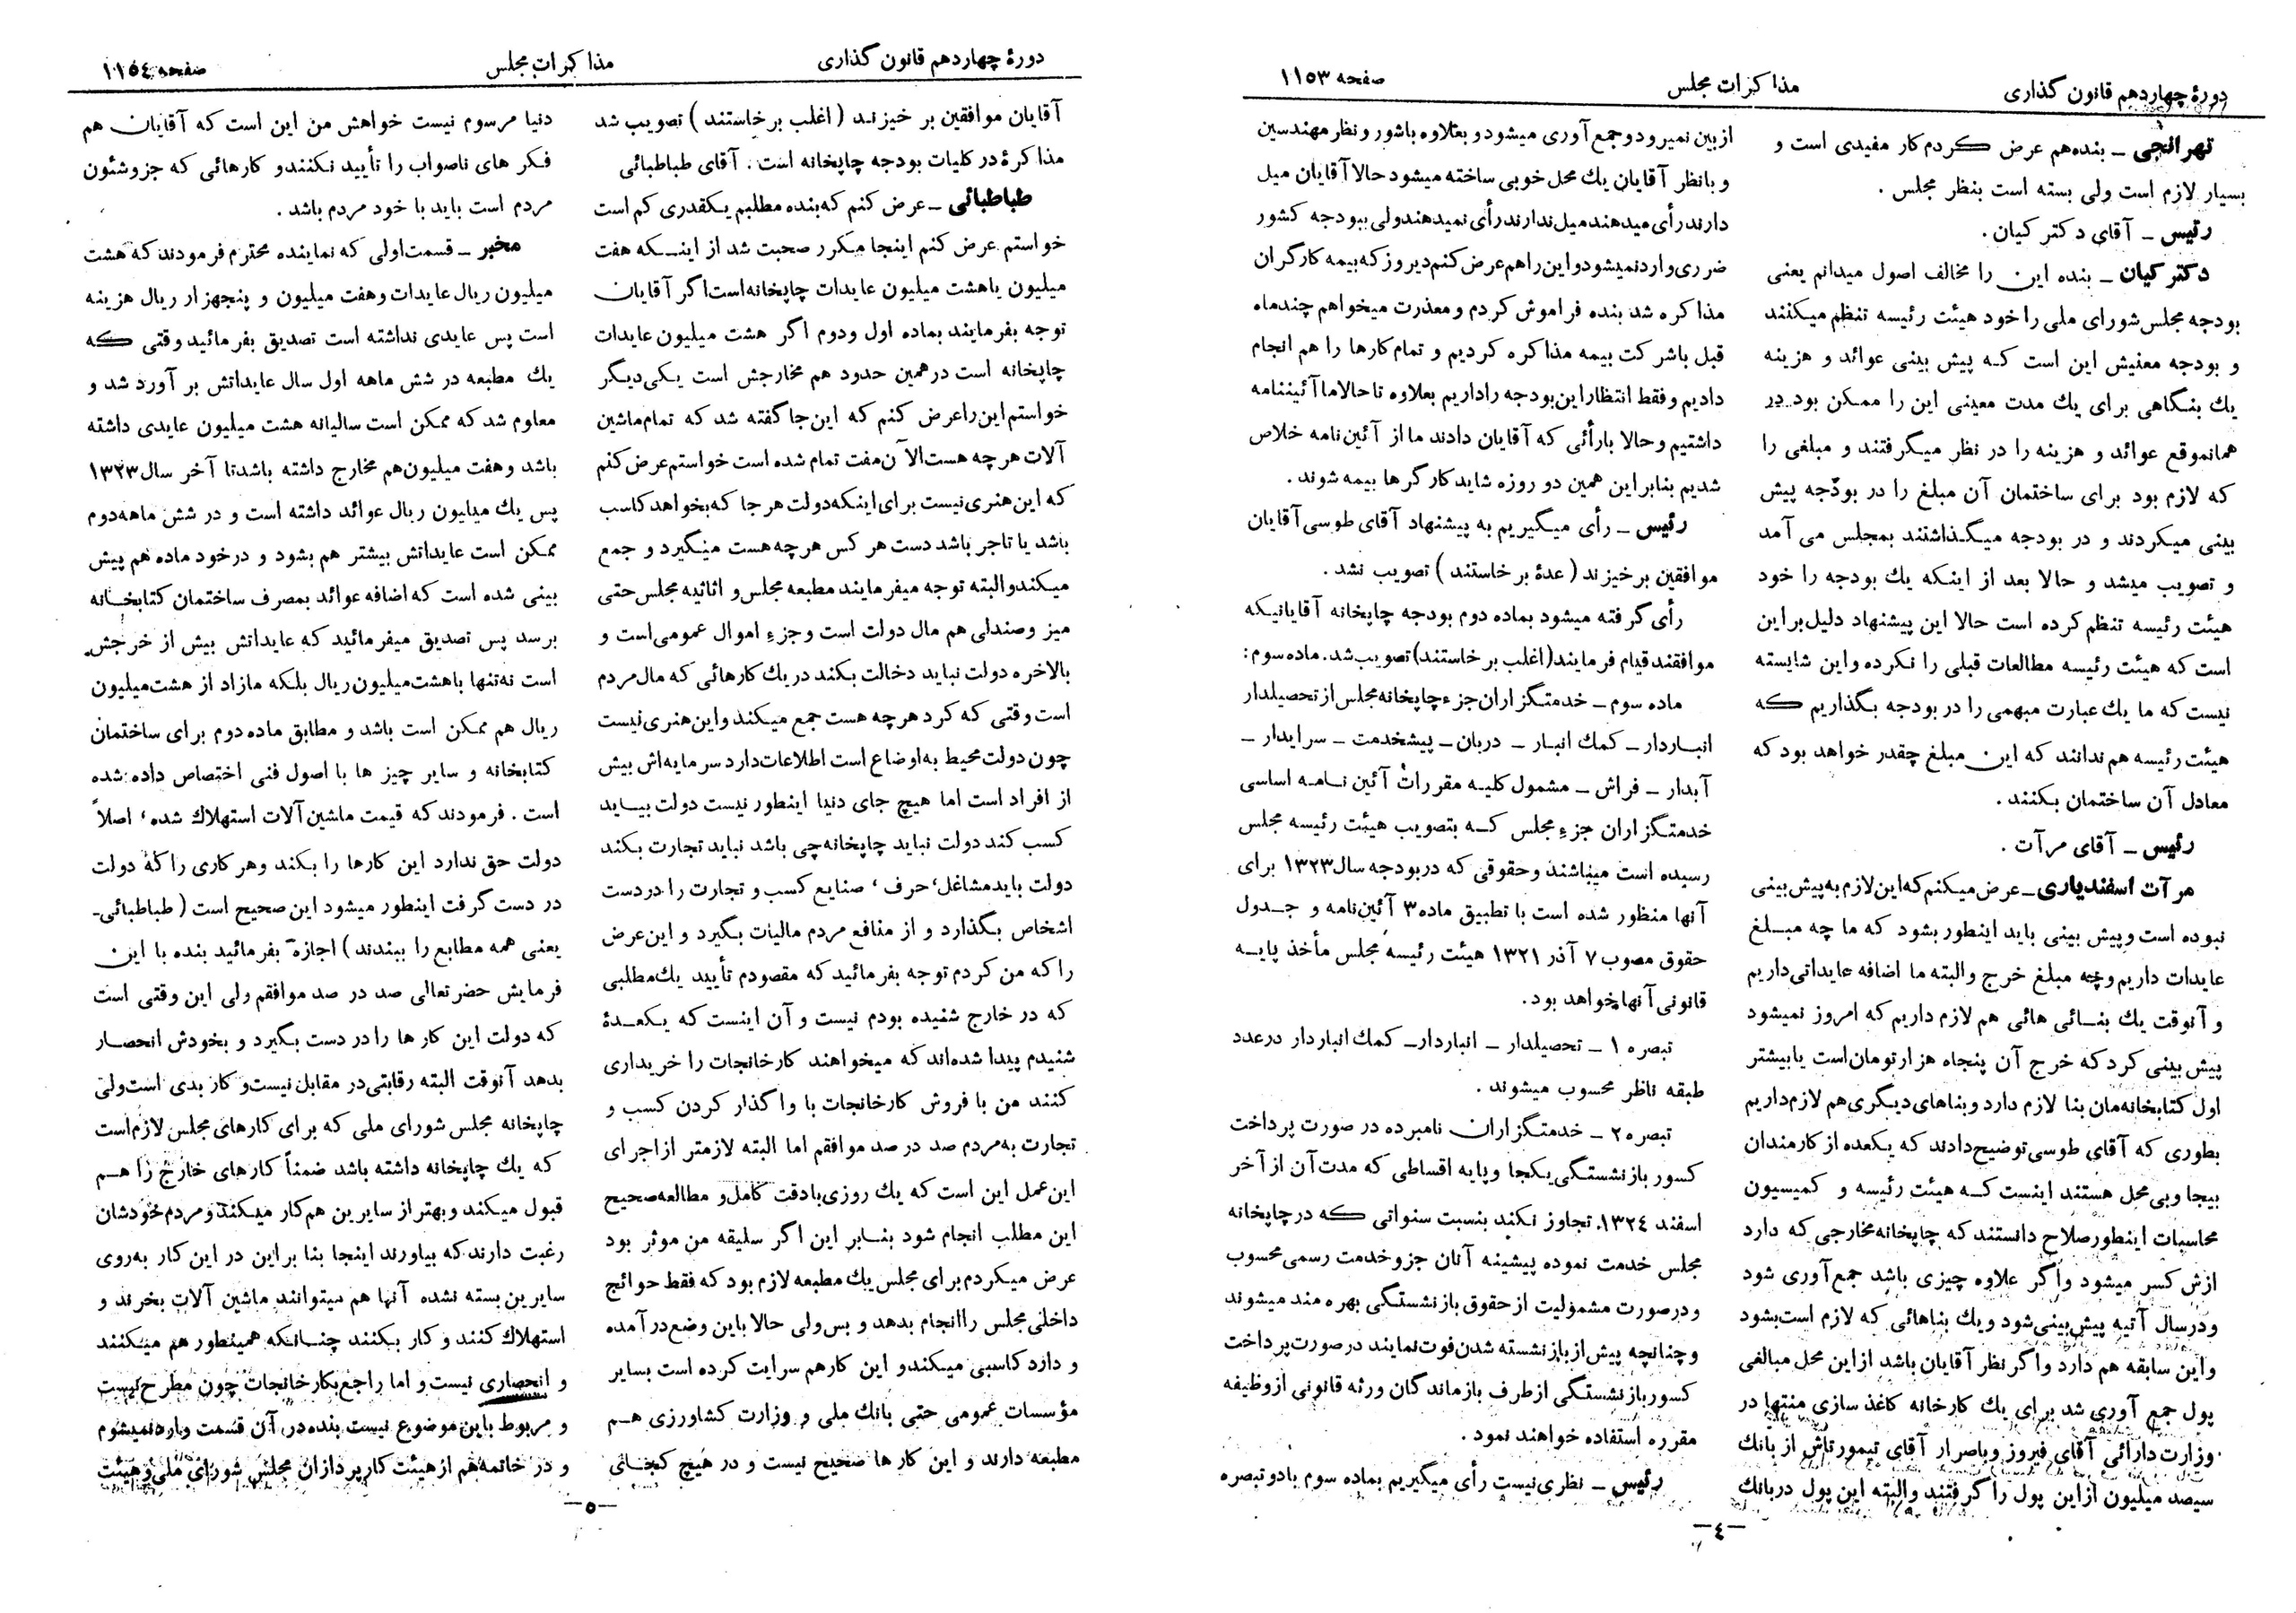 دورهٔ چهاردهم قانون گذاری
مذاکرات مجلس
صفحه ۱۱۵۳
تهرانچی ــ بنده‌هم عرض کردم کار مفیدی است و
بسیار لازم است ولی بسته است بنظر مجلس .
رئیس ــ آقای دکتر کیان .
دکتر کیان ــ بنده این را مخالف اصول میدانم یعنی
بودجه مجلس شورای ملی را خود هیئت رئیسه تنظم میکنند
و بودجه معنیش این است که پیش بینی عوائد و هزینه
یك بنگاهی برای یك مدت معینی این را ممکن بود در
همانموقع عوائد و هزینه را در نظر میگرفتند و مبلغی را
که لازم بود برای ساختمان آن مبلغ را در بودجه پیش
بینی میکردند و در بودجه میگذاشتند بمجلس می آمد
و تصویب میشد و حالا بعد از اینکه یك بودجه را خود
هیئت رئیسه تنظم کرده است حالا این پیشنهاد دلیل براین
است که هیئت رئیسه مطالعات قبلی را نکرده واین شایسته
نیست که ما یك عبارت مبهمی را در بودجه بگذاریم که
هیئت رئیسه هم ندانند که این مبلغ چقدر خواهد بود که
معادل آن ساختمان بکنند .
رئیس ــ آقای مرآت .
مرآت اسفندیاری ــ عرض میکنم که این لازم به پیش بینی
نبوده است وپیش بینی باید اینطور بشود که ما چه مبلغ
عایدات داریم وچه مبلغ خرج والبته ما اضافه عایداتی داریم
و آنوقت یك بنائی هائی هم لازم داریم که امروز نمیشود
پیش بینی کرد که خرج آن پنجاه هزارتومان است یا بیشتر
اول کتابخانه‌مان بنا لازم دارد وبناهای دیگری هم لازم داریم
بطوری که آقای طوسی توضیح دادند که یکعده از کارمندان
بیجا وبی محل هستند اینست که هیئت رئیسه و کمیسیون
محاسبات اینطور صلاح دانستند که چاپخانه مخارجی که دارد
ازش کسر میشود واگر علاوه چیزی باشد جمع آوری شود
ودرسال آتیه پیش بینی شود ویك بناهائی که لازم است بشود
واین سابقه هم دارد واگر نظر آقایان باشد ازاین محل مبالغی
پول جمع آوری شد برای یك کارخانه کاغذ سازی منتها در
وزارت دارائی آقای فیروز وباصرار آقای تیمورتاش از بانك
سیصد میلیون ازاین پول را گرفتند والبته این پول دربانك
ازبین نمیرود و جمع آوری میشود و بعلاوه باشور و نظر مهندسین
و بانظر آقایان یك محل خوبی ساخته میشود حالا آقایان میل
دارند رأی میدهند میل ندارند رأی نمیدهند ولی ببودجه کشور
ضرری وارد نمیشود و این را هم عرض کنم دیروز که بیمه کارگران
مذاکره شد بنده فراموش کردم و معذرت میخواهم چندماه
قبل باشرکت بیمه مذاکره کردیم و تمام کارها را هم انجام
دادیم و فقط انتظار این بودجه راداریم بعلاوه تا حالا ما آئیننامه
داشتیم وحالا با رأئی که آقایان دادند ما از آئین نامه خلاص
شدیم بنابراین همین دو روزه شاید کارگرها بیمه شوند .
رئیس ــ رأی میگیریم به پیشنهاد آقای طوسی آقایان
موافقین برخیزند (عدهٔ برخاستند) تصویب نشد .
رأی گرفته میشود بماده دوم بودجه چاپخانه آقایانیکه
موافقند قیام فرمایند (اغلب برخاستند) تصویب شد. ماده سوم:
ماده سوم ــ خدمتگزاران جزء چاپخانه مجلس از تحصیلدار
انباردار ــ کمك انبار ــ دربان ــ پیشخدمت ــ سرایدار ــ
آبدار ــ فراش ــ مشمول کلیه مقررات آئین نامه اساسی
خدمتگزاران جزء مجلس که بتصویب هیئت رئیسه مجلس
رسیده است میباشند و حقوقی که در بودجه سال ۱۳۲۳ برای
آنها منظور شده است با تطبیق ماده ۳ آئین نامه و جدول
حقوق مصوب ۷ آذر ۱۳۲۱ هیئت رئیسه مجلس مأخذ پایه
قانونی آنها خواهد بود.
تبصره ۱ ــ تحصیلدار ــ انباردار ــ کمك انباردار در عدد
طبقه ناظر محسوب میشوند .
تبصره ۲ ــ خدمتگزاران نامبرده در صورت پرداخت
کسور بازنشستگی یکجا و یا به اقساطی که مدت آن از آخر
اسفند ۱۳۲۴ تجاوز نکند بنسبت سنواتی که در چاپخانه
مجلس خدمت نموده پیشینه آنان جزو خدمت رسمی محسوب
و درصورت مشمولیت از حقوق بازنشستگی بهره مند میشوند
و چنانچه پیش از بازنشسته شدن فوت نمایند در صورت پرداخت
کسور بازنشستگی از طرف بازماندگان ورثه قانونی از وظیفه
مقرره استفاده خواهند نمود .
رئیس ــ نظری نیست رأی میگیریم بماده سوم با دو تبصره
ــ۴ــ
دورهٔ چهاردهم قانون گذاری
مذاکرات مجلس
صفحه ۱۱۵۴
آقایان موافقین بر خیزند (اغلب برخاستند) تصویب شد
مذاکرهٔ در کلیات بودجه چاپخانه است . آقای طباطبائی
طباطبائی ــ عرض کنم که بنده مطلبم یکقدری کم است
خواستم عرض کنم اینجا مکرر صحبت شد از اینکه هفت
میلیون یاهشت میلیون عایدات چاپخانه است اگر آقایان
توجه بفرمایند بماده اول ودوم اگر هشت میلیون عایدات
چاپخانه است درهمین حدود هم مخارجش است یکی دیگر
خواستم این راعرض کنم که این جا گفته شد که تمام ماشین
آلات هرچه هست الآن مفت تمام شده است خواستم عرض کنم
که این هنری نیست برای اینکه دولت هر جا که بخواهد کاسب
باشد یا تاجر باشد دست هر کس هرچه هست میگیرد و جمع
میکند والبته توجه میفرمایند مطبعه مجلس و اثاثیه مجلس حتی
میز وصندلی هم مال دولت است وجزء اموال عمومی است و
بالاخره دولت نباید دخالت بکند در یك کارهائی که مال مردم
است وقتی که کرد هرچه هست جمع میکند واین هنری نیست
چون دولت محیط به اوضاع است اطلاعات دارد سرمایه‌اش بیش
از افراد است اما هیچ جای دنیا اینطور نیست دولت بیاید
کسب کند دولت نباید چاپخانه‌چی باشد نباید تجارت بکند
دولت باید مشاغل، حرف، صنایع کسب و تجارت را در دست
اشخاص بگذارد و از منافع مردم مالیات بگیرد و این عرض
را که من کردم توجه بفرمائید که مقصودم تأیید یك مطلبی
که در خارج شنیده بودم نیست و آن اینست که یکعدهٔ
شنیدم پیدا شده‌اند که میخواهند کارخانجات را خریداری
کنند من با فروش کارخانجات با واگذار کردن کسب و
تجارت به مردم صد در صد موافقم اما البته لازمتر از اجرای
این عمل این است که یك روزی بادقت کامل و مطالعه صحیح
این مطلب انجام شود بنابر این اگر سلیقه من موثر بود
عرض میکردم برای مجلس یك مطبعه لازم بود که فقط حوائج
داخلی مجلس راانجام بدهد و بس ولی حالا باین وضع درآمده
و دارد کاسبی میکند و این کارهم سرایت کرده است بسایر
مؤسسات عمومی حتی بانك ملی و وزارت کشاورزی هم
مطبعه دارند و این کار ها صحیح نیست و در هیچ کجای
دنیا مرسوم نیست خواهش من این است که آقایان هم
فکر های ناصواب را تأیید نکنند و کارهائی که جزو شئون
مردم است باید با خود مردم باشد .
مخبر ــ قسمت اولی که نماینده محترم فرمودند که هشت
میلیون ریال عایدات وهفت میلیون و پنجهزار ریال هزینه
است پس عایدی نداشته است تصدیق بفرمائید وقتی که
یك مطبعه در شش ماهه اول سال عایداتش بر آورد شد و
معلوم شد که ممکن است سالیانه هشت میلیون عایدی داشته
باشد وهفت میلیون هم مخارج داشته باشد تا آخر سال ۱۳۲۳
پس یك میلیون ریال عوائد داشته است و در شش ماهه دوم
ممکن است عایداتش بیشتر هم بشود و درخود ماده هم پیش
بینی شده است که اضافه عوائد بمصرف ساختمان کتابخانه
برسد پس تصدیق میفرمائید که عایداتش بیش از خرجش
است نه تنها با هشت میلیون ریال بلکه مازاد از هشت میلیون
ریال هم ممکن است باشد و مطابق ماده دوم برای ساختمان
کتابخانه و سایر چیز ها با اصول فنی اختصاص داده شده
است . فرمودند که قیمت ماشین آلات استهلاك شده، اصلاً
دولت حق ندارد این کارها را بکند وهر کاری را که دولت
در دست گرفت اینطور میشود این صحیح است (طباطبائی ــ
یعنی همه مطابع را ببندند) اجازه بفرمائید بنده با این
فرمایش حضرتعالی صد در صد موافقم ولی این وقتی است
که دولت این کار ها را در دست بگیرد و بخودش انحصار
بدهد آنوقت البته رقابتی در مقابل نیست و کار بدی است ولی
چاپخانه مجلس شورای ملی که برای کارهای مجلس لازم است
که یك چاپخانه داشته باشد ضمناً کارهای خارج را هم
قبول میکند و بهتر از سایرین هم کار میکند و مردم خودشان
رغبت دارند که بیاورند اینجا بنا براین در این کار به روی
سایرین بسته نشده آنها هم میتوانند ماشین آلات بخرند و
استهلاك کنند و کار بکنند چنانکه همینطور هم میکنند
و انحصاری نیست و اما راجع بکارخانجات چون مطرح نیست
و مربوط باین موضوع نیست بنده در آن قسمت وارد نمیشوم
و در خاتمه هم از هیئت کارپردازان مجلس شورای ملی و هیئت
ــ۵ــ